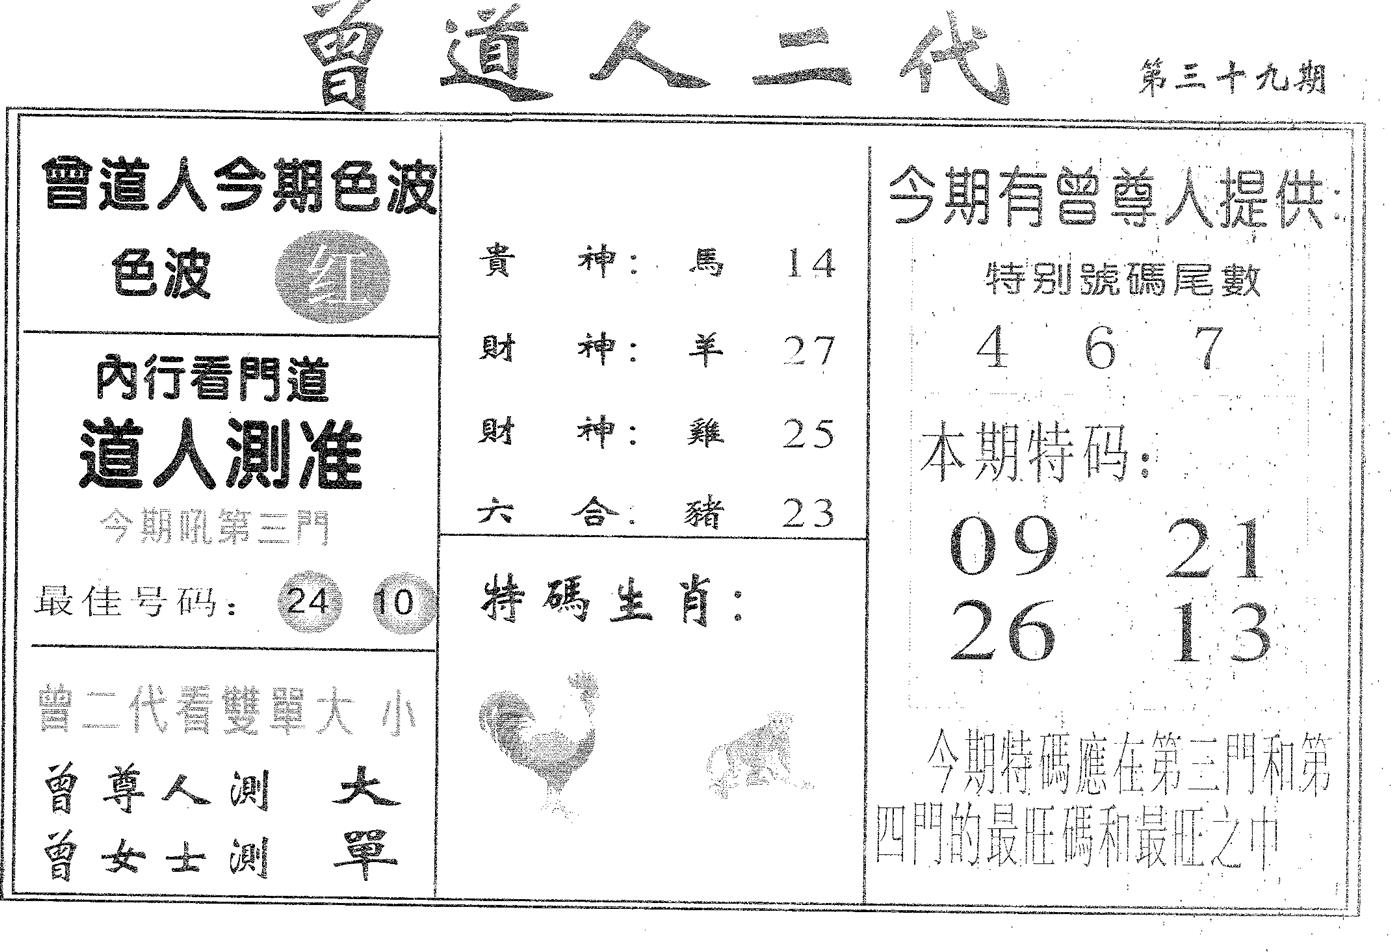 曾道人二代
第三十九期
曾道人今期色波
色波 红
內行看門道
道人測准
今期吼第三門
最佳号码： 24 10
曾二代看雙單大 小
曾尊人測 大
曾女士測 單
貴 神： 馬 14
財 神： 羊 27
財 神： 雞 25
六 合： 豬 23
特碼生肖：
今期有曾尊人提供：
特别號碼尾數
4 6 7
本期特码：
09 21
26 13
今期特碼應在第三門和第
四門的最旺碼和最旺之中